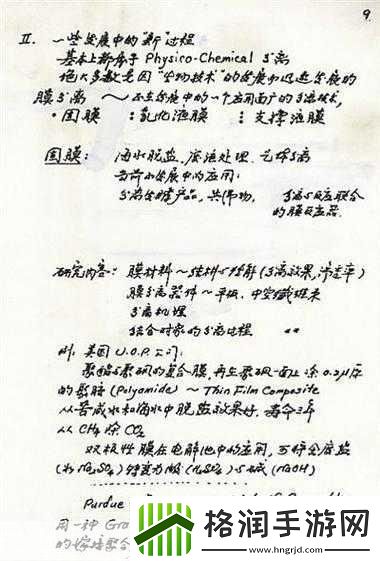 9.
II. 一些发展中的"新"过程
基本上都属于 Physico-Chemical 分离
绝大多数是因"生物技术"的发展而迅速发展的
膜分离 ～ 还在发展中的一个应用面广的分离技术,
·固膜 :乳化液膜 ⋮支撑液膜
固膜: 海水脱盐、废液处理、气体分离
当前在发展中的应用:
分离发酵产品,共沸物, 分离与反应联合
的膜反应器.
研究内容: 膜材料～结构与性能(分离效果,渗透率)
膜分离器件～平板、中空纤维束
分离机理
结合对象的分离过程
例. 美国 U.O.P. 公司:
聚酰与聚砜的复合膜,再在聚砜一面上涂 0.2μ厚
的聚胺 (Polyamide) ～ Thin Film Composite
从苦咸水和海水中脱盐效果好,寿命3年
从 CH4 除 CO2
双极性膜在电解池中的应用,可将金属盐
(如 Na2SO4) 转变为酸 (H2SO4) 与碱 (NaOH)
Purdue
用一种 Gra
的嫁接聚合
格润手游网
www.hngrjd.com